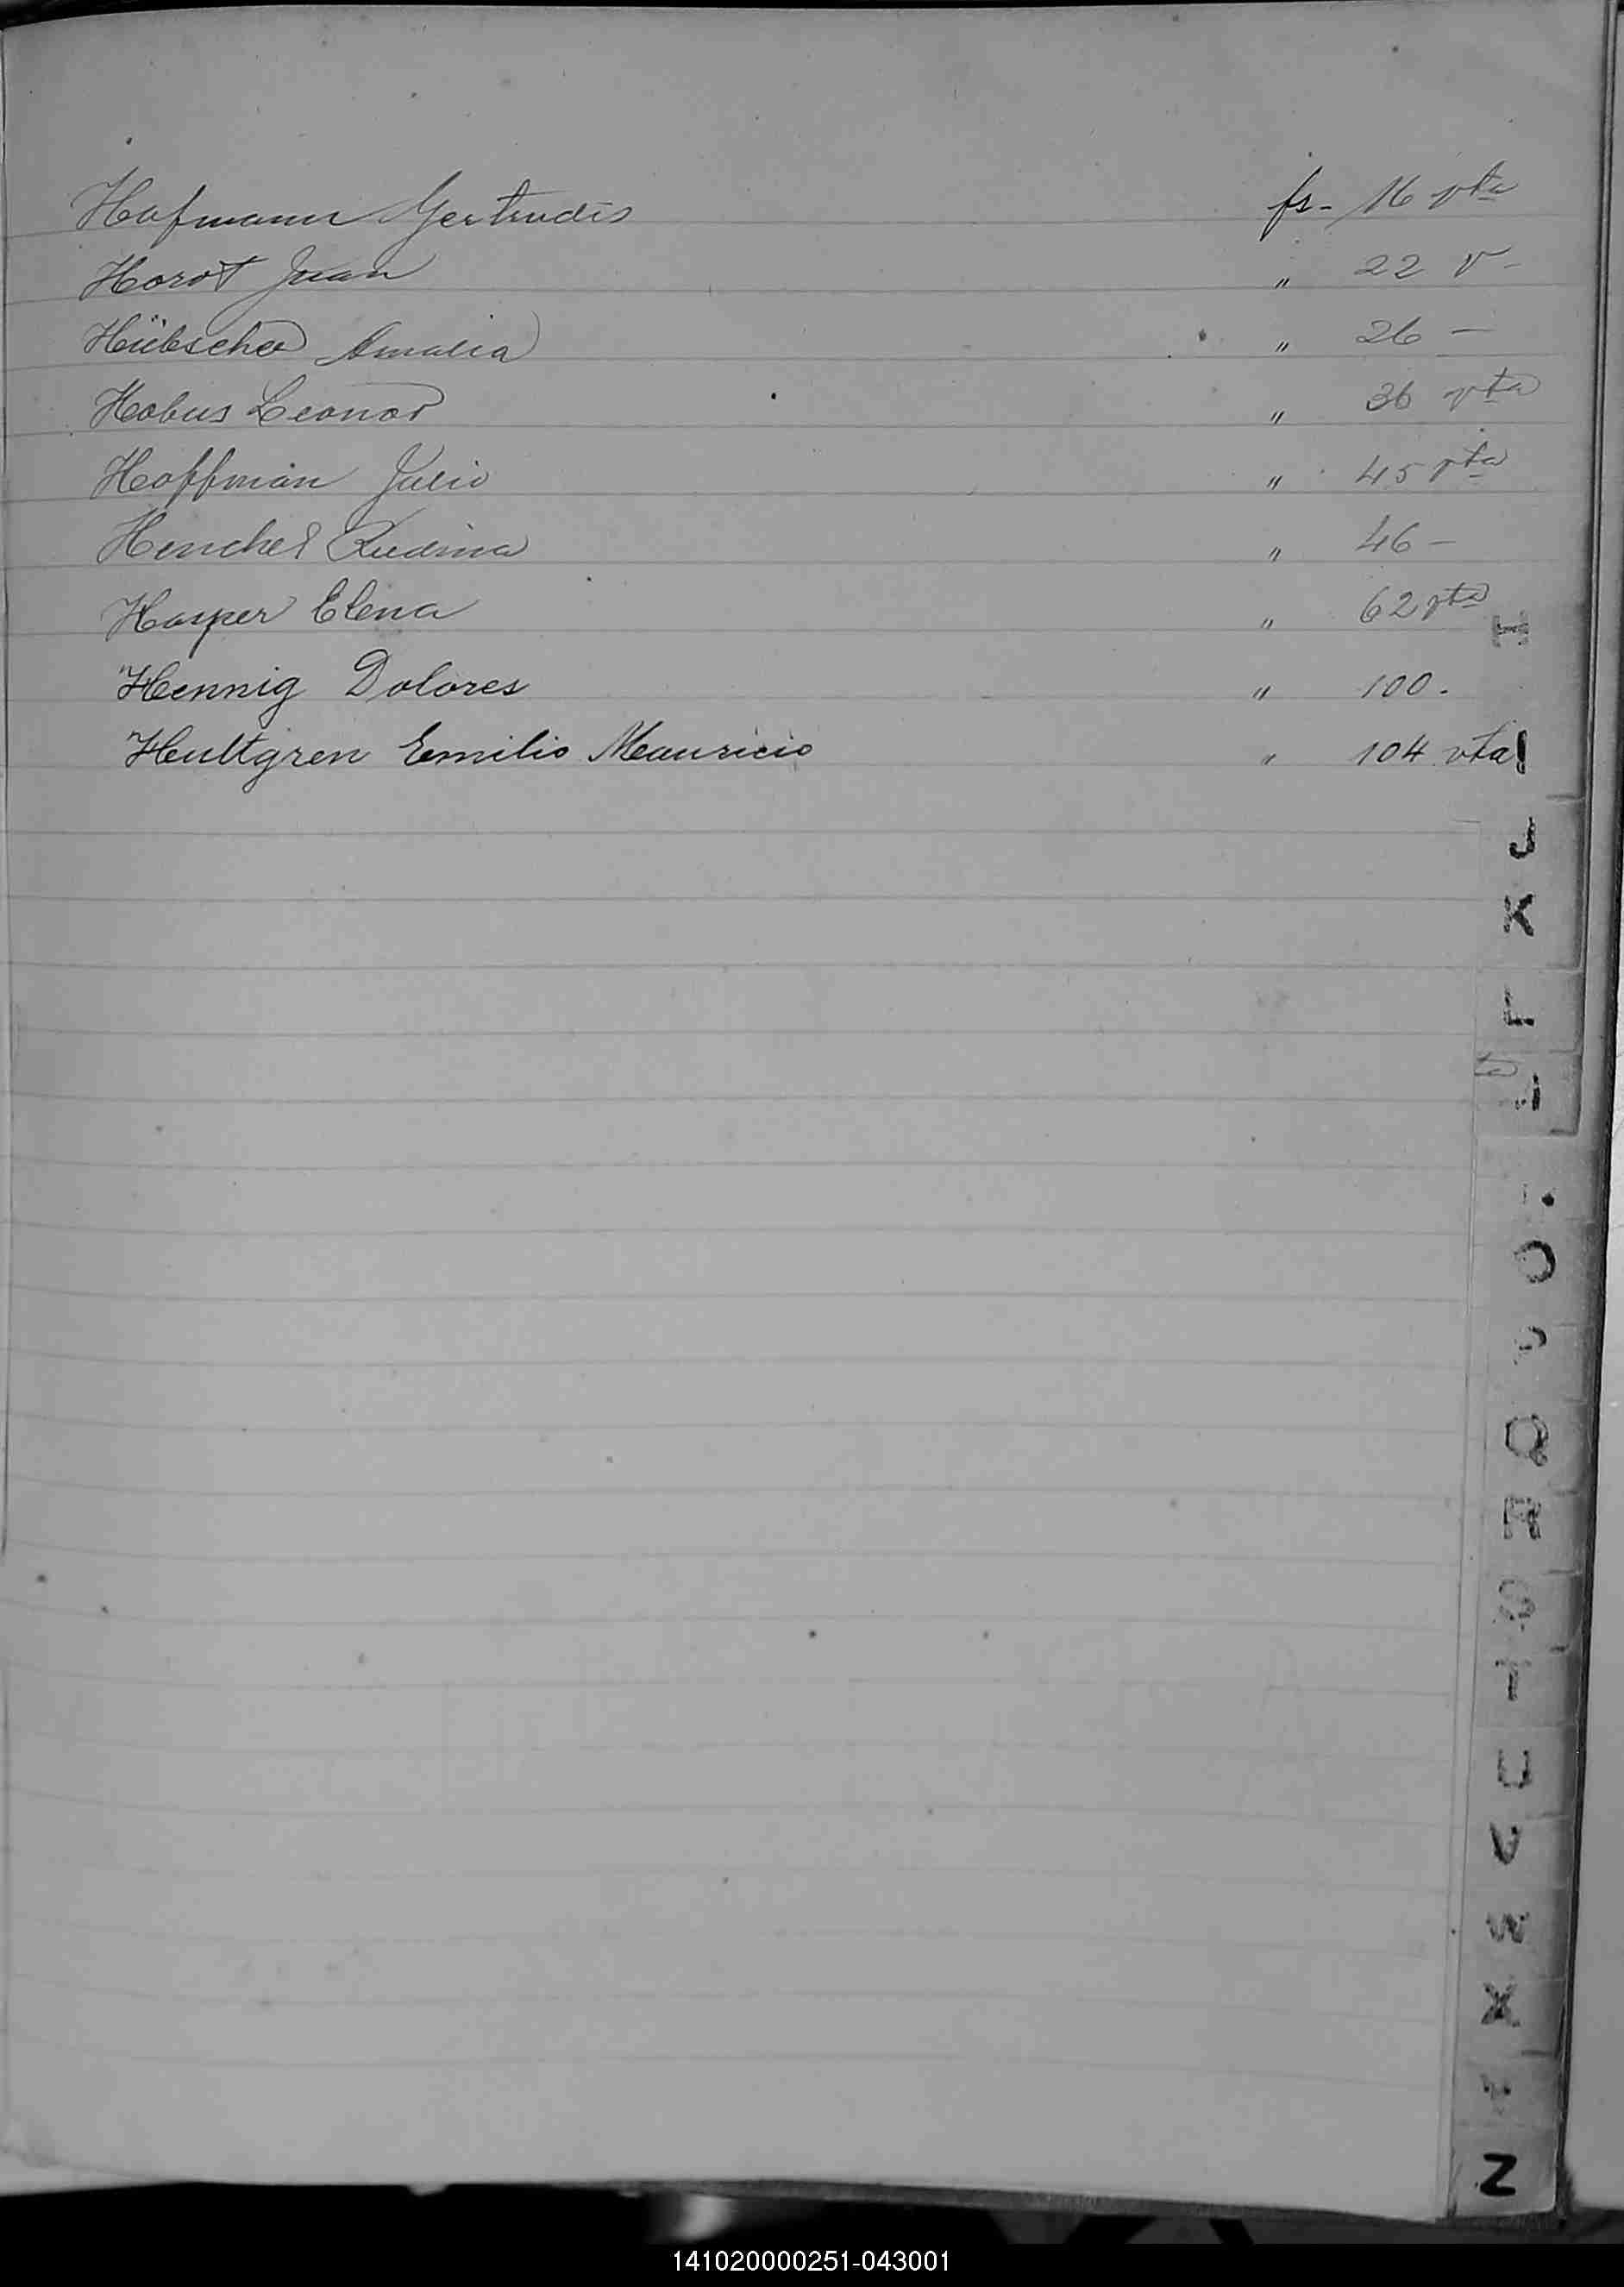 Hofmann Gertrudis fs- 16 vta
Horst Juan " 22 v-
Hübscher Amalia " 26 —
Hobus Leonor " 36 vta
Hoffman Julio " 45 vta
Henchel " 46 –
Hasper Elena " 62 vta
Hennig Dolores " 100.
Hultgren Emilio Mauricio " 104 vta
H
J
K
L
O
Q
R
S
T
U
V
W
X
Y
Z
141020000251-043001